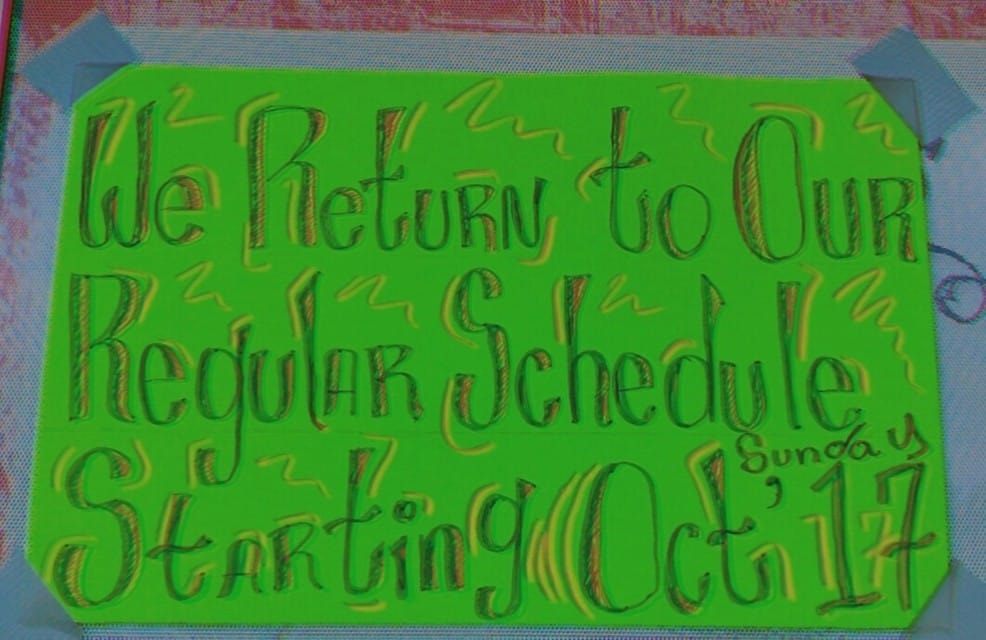 We Return to Our
Regular Schedule
Sunday
Starting Oct' 17